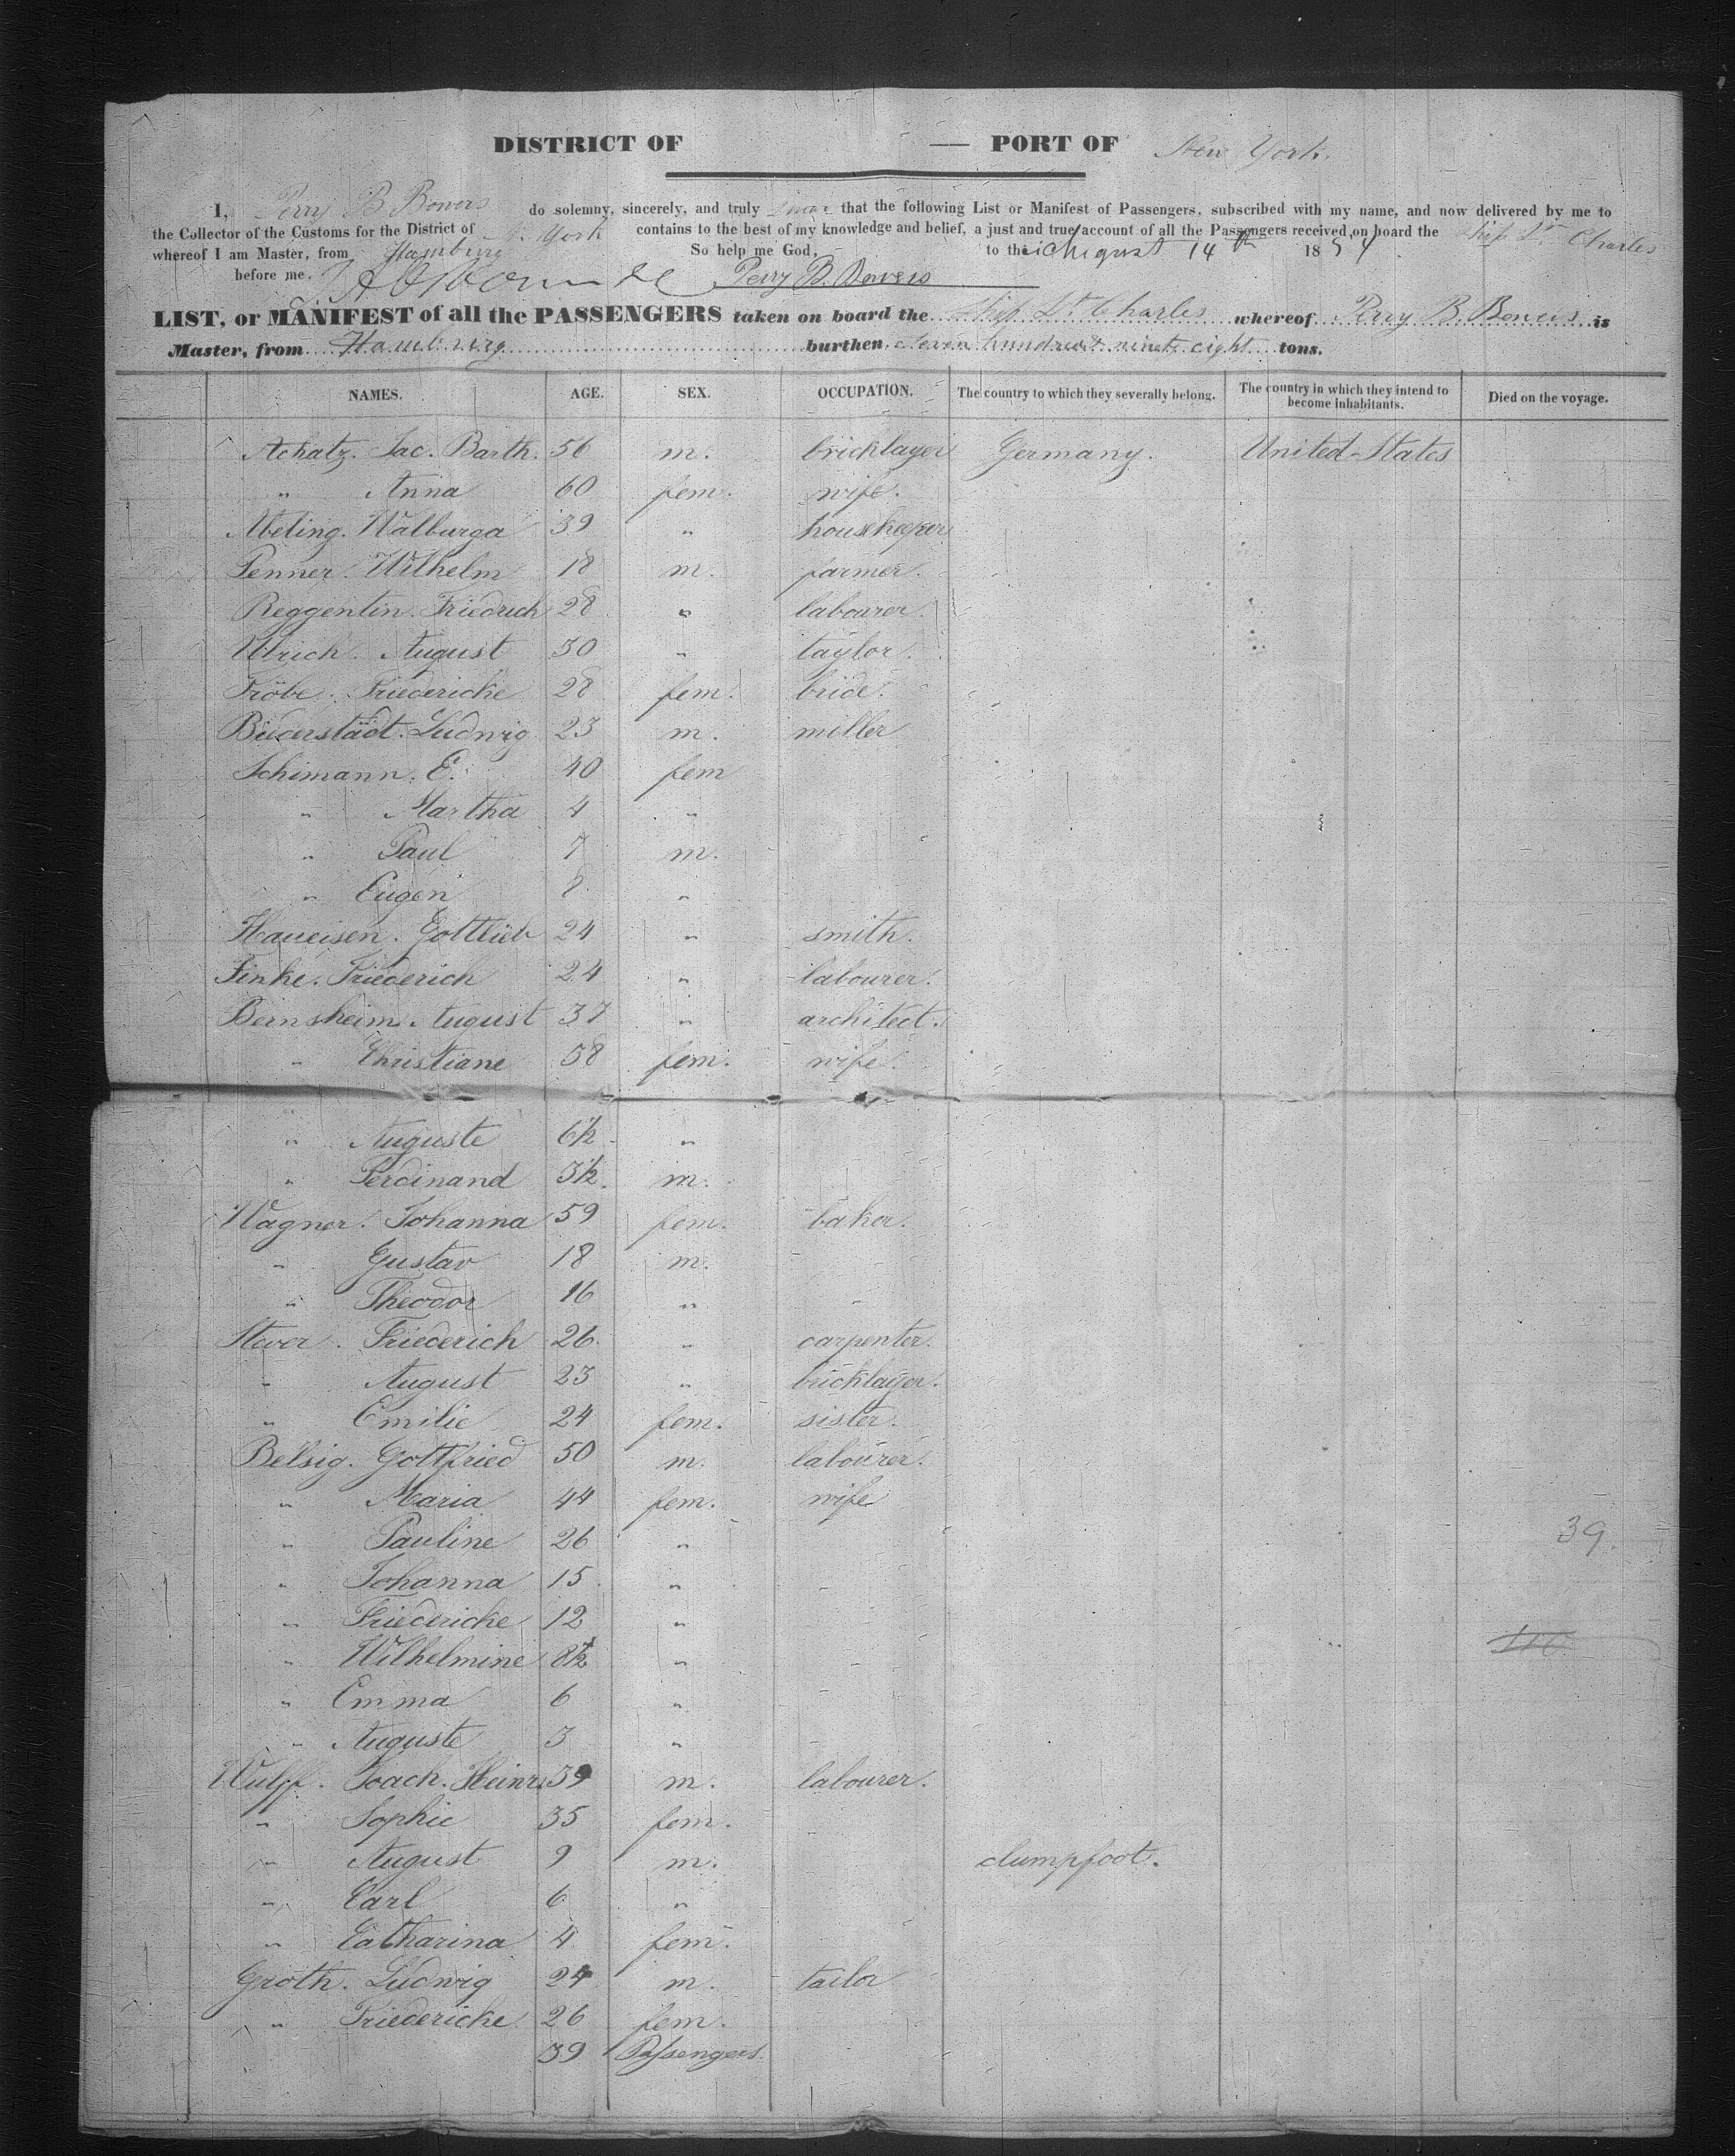 DISTRICT OF — PORT OF New York.
I, Perry B. Bowers do solemny, sincerely, and truly swear that the following List or Manifest of Passengers, subscribed with my name, and now delivered by me to
the Collector of the Customs for the District of N. York contains to the best of my knowledge and belief, a just and true account of all the Passengers received on board the Ship St. Charles
whereof I am Master, from Hamburg So help me God. to the August 14th 1854
before me. Perry B. Bowers
LIST, or MANIFEST of all the PASSENGERS taken on board the Ship St. Charles whereof Perry B. Bowers is
Master, from Hamburg burthen eleven hundred ninety eight tons.
NAMES. AGE. SEX. OCCUPATION. The country to which they severally belong. The country in which they intend to become inhabitants. Died on the voyage.
Achatz. Jac. Barth. 56 m. bricklayer Germany. United-States
" Anna 60 fem. wife.
Abeling. Walburga 39 " housekeeper
Penner. Wilhelm 18 m. farmer.
Reggentin. Friedrich 28 " labourer.
Ulrich. August 30 " taylor.
Fröbe. Friedericke 28 fem. bride.
Biederstädt. Ludwig 23 m. miller
Schimann. E. 40 fem
" Martha 4 "
" Paul 7 m.
" Eugen "
Haueisen. Gottlieb 24 " smith.
Finke. Friederich 24 " labourer.
Bernsheim. August 37 " architect.
" Christiane 38 fem. wife.
" Auguste 6½ "
" Ferdinand 3½ m.
Wagner. Johanna 59 fem. baker.
" Gustav 18 m.
" Theodor 16 "
Stever. Friederich 26 " carpenter.
" August 23 " bricklayer.
" Emilie 24 fem. sister.
Belsig. Gottfried 50 m. labourer.
" Maria 44 fem. wife
" Pauline 26 "
39
" Johanna 15 "
" Friedericke 12 "
" Wilhelmine 8½ "
" Emma 6 "
" Auguste 3 "
Wulff. Joach. Heinr. 39 m. labourer.
" Sophie 35 fem.
" August 9 m. clumpfoot.
" Carl 6 "
" Catharina 4 fem.
Groth. Ludwig 24 m. tailor
" Friedericke 26 fem.
39 Passengers.